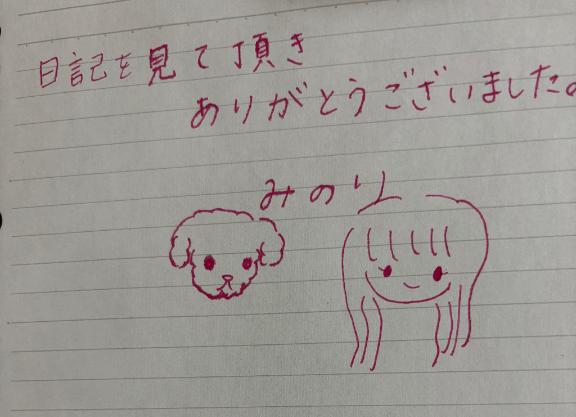 日記を見て頂き
ありがとうございました。
みのり